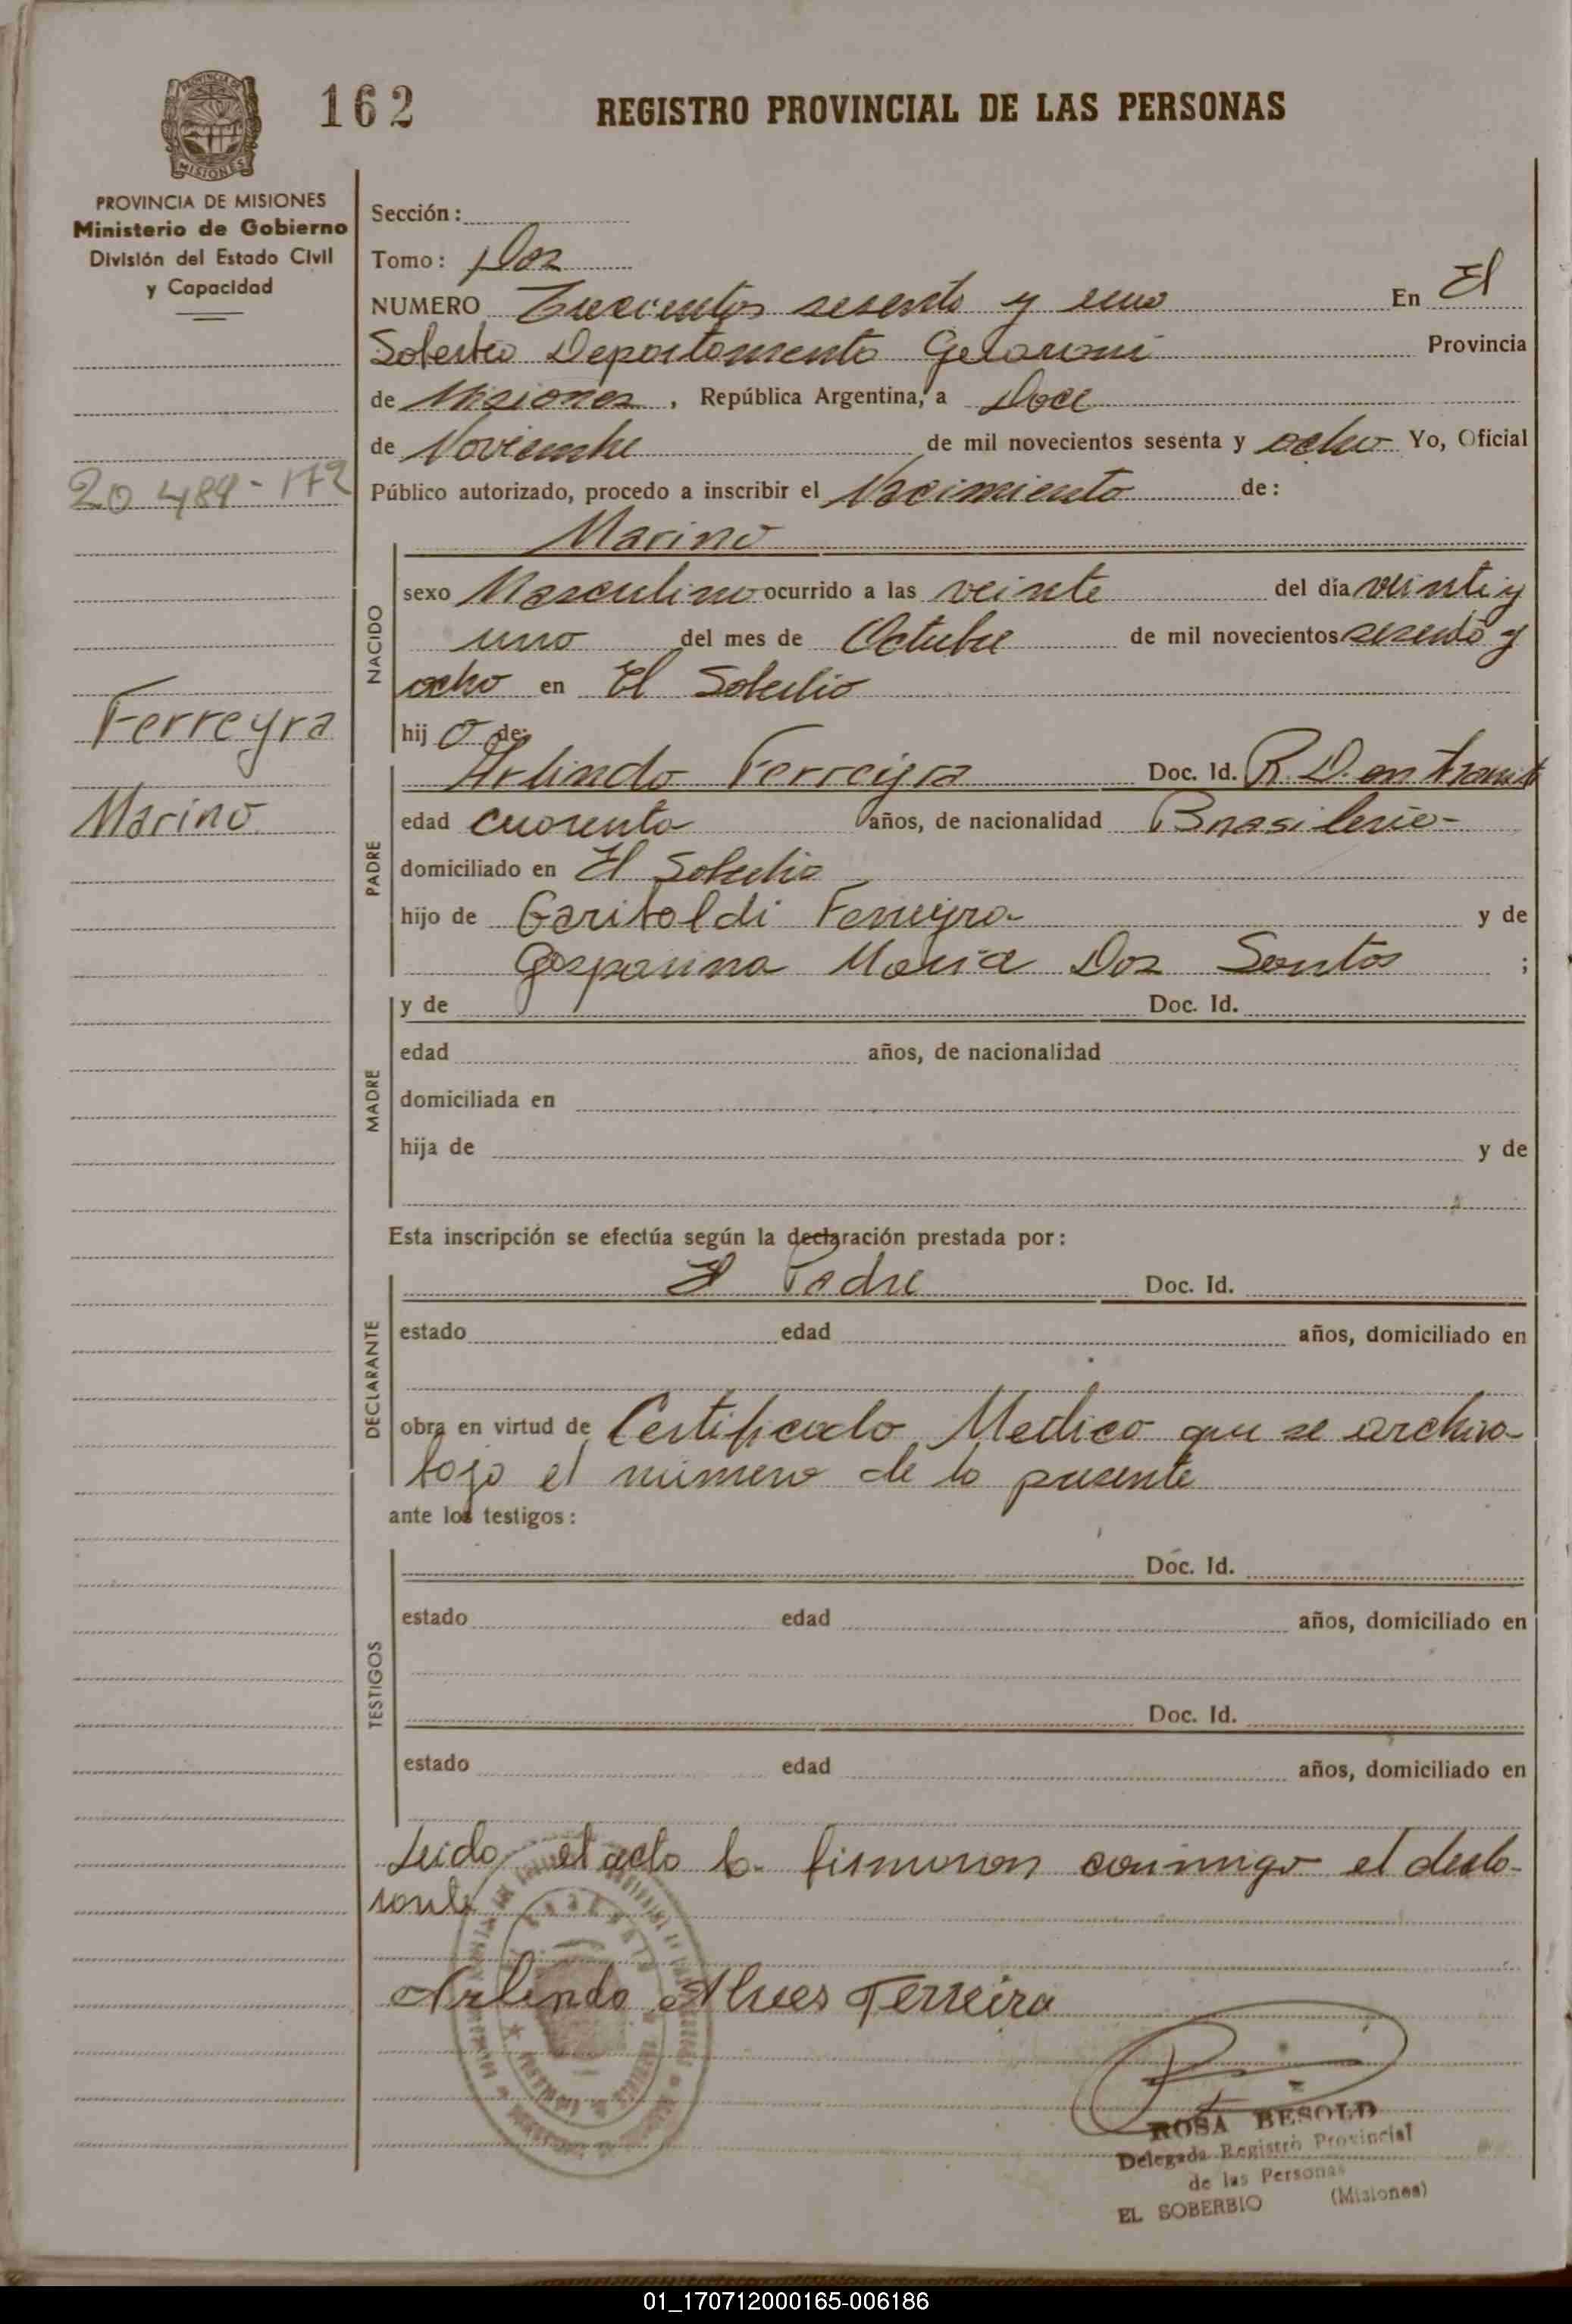 162
REGISTRO PROVINCIAL DE LAS PERSONAS
MISIONES
PROVINCIA DE MISIONES
Ministerio de Gobierno
División del Estado Civil
y Capacidad
20 484-172
Ferreyra
Marino
Sección:
Tomo: Dos
NUMERO Trescientos sesenta y uno En El
Soberbio Departamento Guaraní Provincia
de Misiones, República Argentina, a Doce
de Noviembre de mil novecientos sesenta y ocho Yo, Oficial
Público autorizado, procedo a inscribir el Nacimiento de:
Marino
NACIDO
sexo Masculino ocurrido a las veinte del día veinte y
uno del mes de Octubre de mil novecientos sesenta y
ocho en El Soberbio
hijo de:
PADRE
Arlindo Ferreyra Doc. Id. R. D. en tramit
edad cuarenta años, de nacionalidad Brasilero-
domiciliado en El Soberbio
hijo de Gariboldi Ferreyra- y de
Gasparina Maria Dos Santos ;
MADRE
y de Doc. Id.
edad años, de nacionalidad
domiciliada en
hija de y de
Esta inscripción se efectúa según la declaración prestada por:
DECLARANTE
El Padre Doc. Id.
estado edad años, domiciliado en
obra en virtud de Certificado Medico que se archiva-
bajo el número de la presente
ante los testigos:
TESTIGOS
Doc. Id.
estado edad años, domiciliado en
Doc. Id.
estado edad años, domiciliado en
Leida el acta la firmaron conmigo el decla-
rante
Arlindo Alves Ferreira
ROSA BESOLD
Delegada Registro Provincial
de las Personas
EL SOBERBIO (Misiones)
01_170712000165-006186